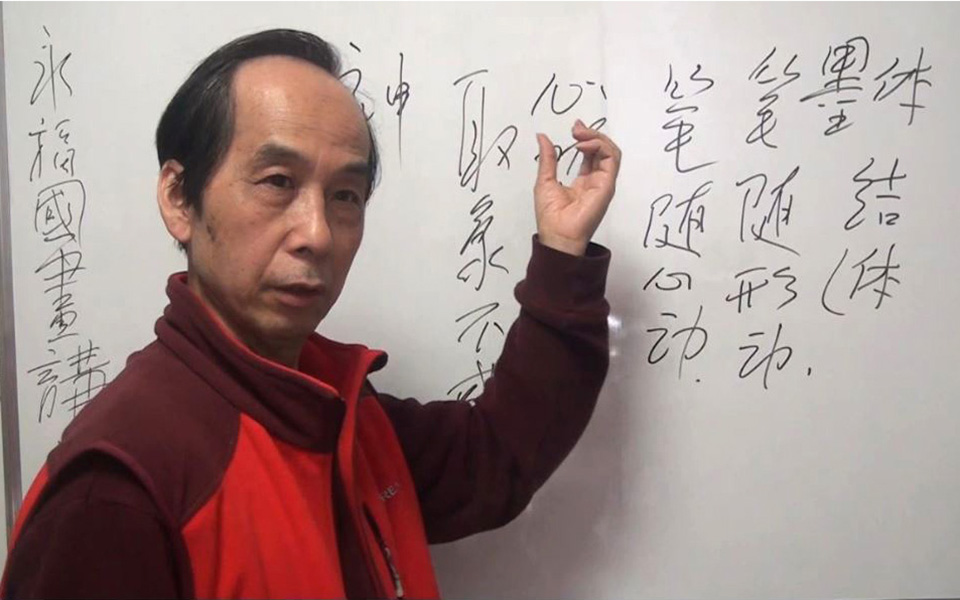 墨体结(体
笔随形动.
笔随心动.
心
取象不
神
永福國畫講